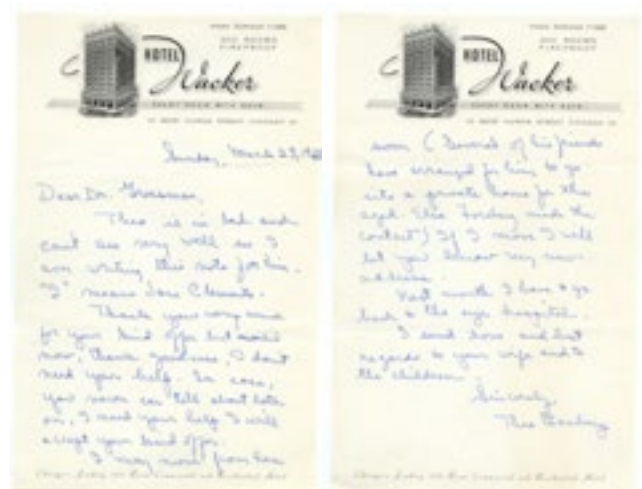 HOTEL
Wacker
300 ROOMS
FIREPROOF
EVERY ROOM WITH BATH
Sunday, March 29,
Dear Dr. Grossman,
Theo is in bed and
can't see very well so I
am writing this note for him.
"I" means
Thank you very much
for your kind offer but
now, thank goodness, I don't
need your help. In case,
you never can tell about
I need your help I will
accept your kind offer.
I may move from here
HOTEL
Wacker
300 ROOMS
FIREPROOF
EVERY ROOM WITH BATH
soon (Several of his friends
have arranged for him to go
into a private home for the
aged. made the
contact) If I move I will
let you know my new
address.
Next month I have to go
back to the eye hospital.
I send love and best
regards to your wife and to
the children.
Sincerely,
Theo